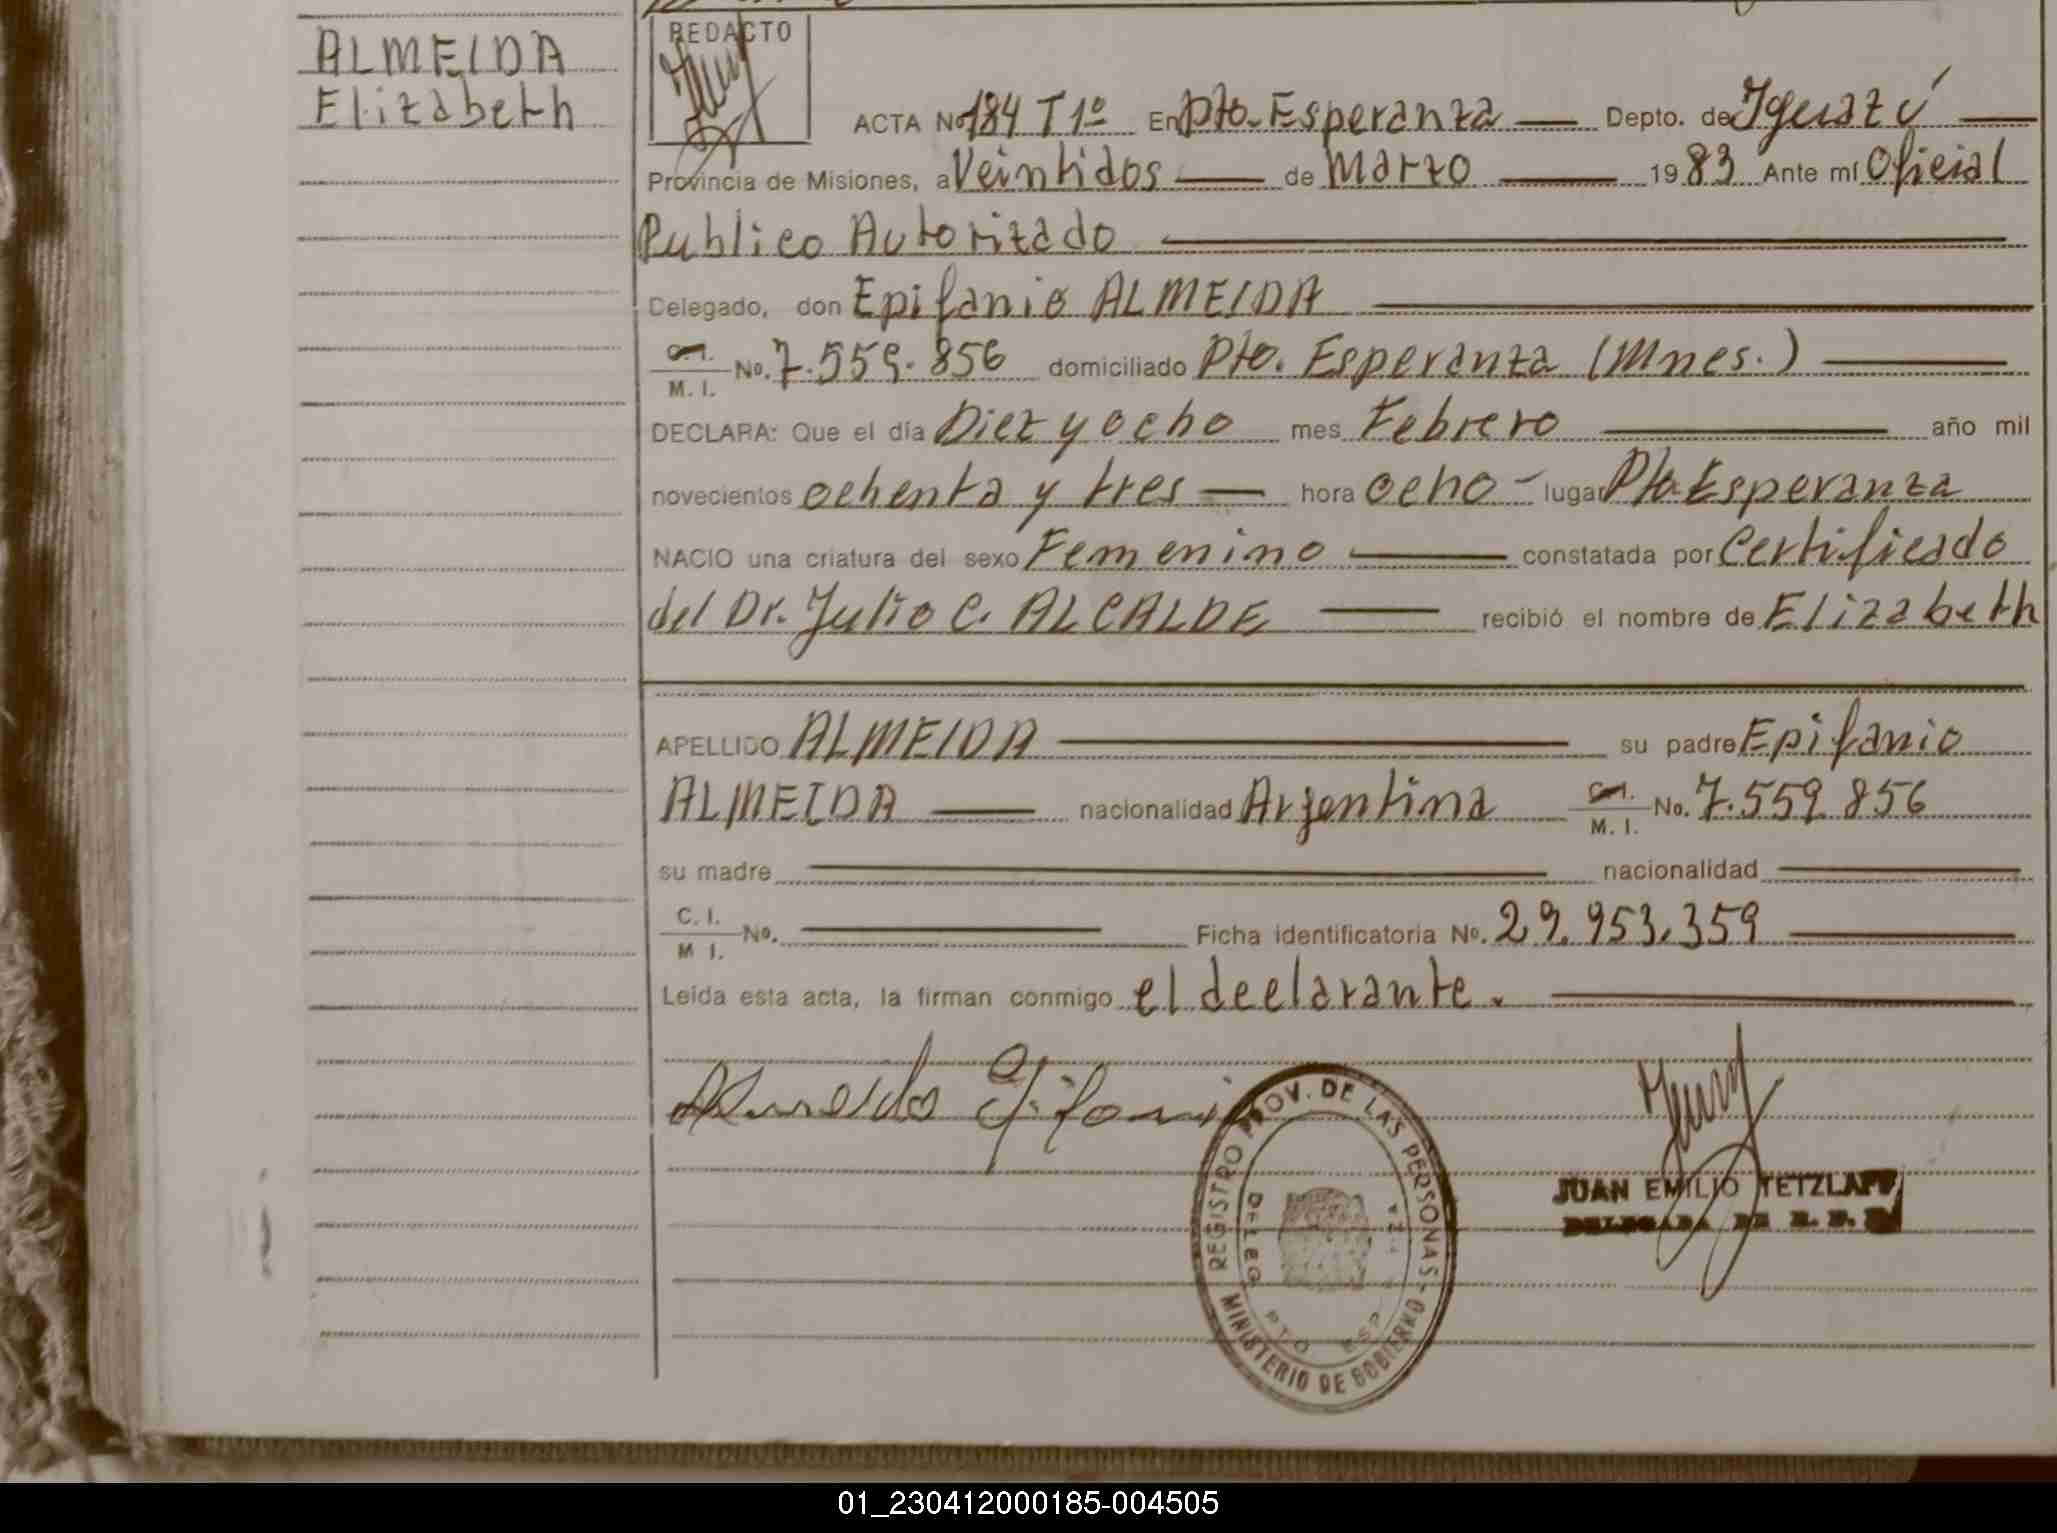 ALMEIDA
Elizabeth
REDACTO
ACTA No 184 T 1º En Pto. Esperanza Depto. de Iguazú
Provincia de Misiones, a Veintidos de Marzo 1983 Ante mí Oficial
Publico Autorizado
Delegado, don Epifanio ALMEIDA
C.I. M. I. No. 7.559.856 domiciliado Pto. Esperanza (Mnes.)
DECLARA: Que el día Diez y ocho mes Febrero año mil
novecientos ochenta y tres hora ocho lugar Pto. Esperanza
NACIO una criatura del sexo Femenino constatada por Certificado
del Dr. Julio C. ALCALDE recibió el nombre de Elizabeth
APELLIDO ALMEIDA su padre Epifanio
ALMEIDA nacionalidad Argentina C.I. M. I. No. 7.559.856
su madre nacionalidad
C. I. M I. No. Ficha identificatoria No. 29.953.359
Leída esta acta, la firman conmigo el declarante.
Almeida Epifanio
REGISTRO PROV. DE LAS PERSONAS - MINISTERIO DE GOBIERNO
DELEG. PTO ESP
JUAN EMILIO TETZLAFF
01_230412000185-004505